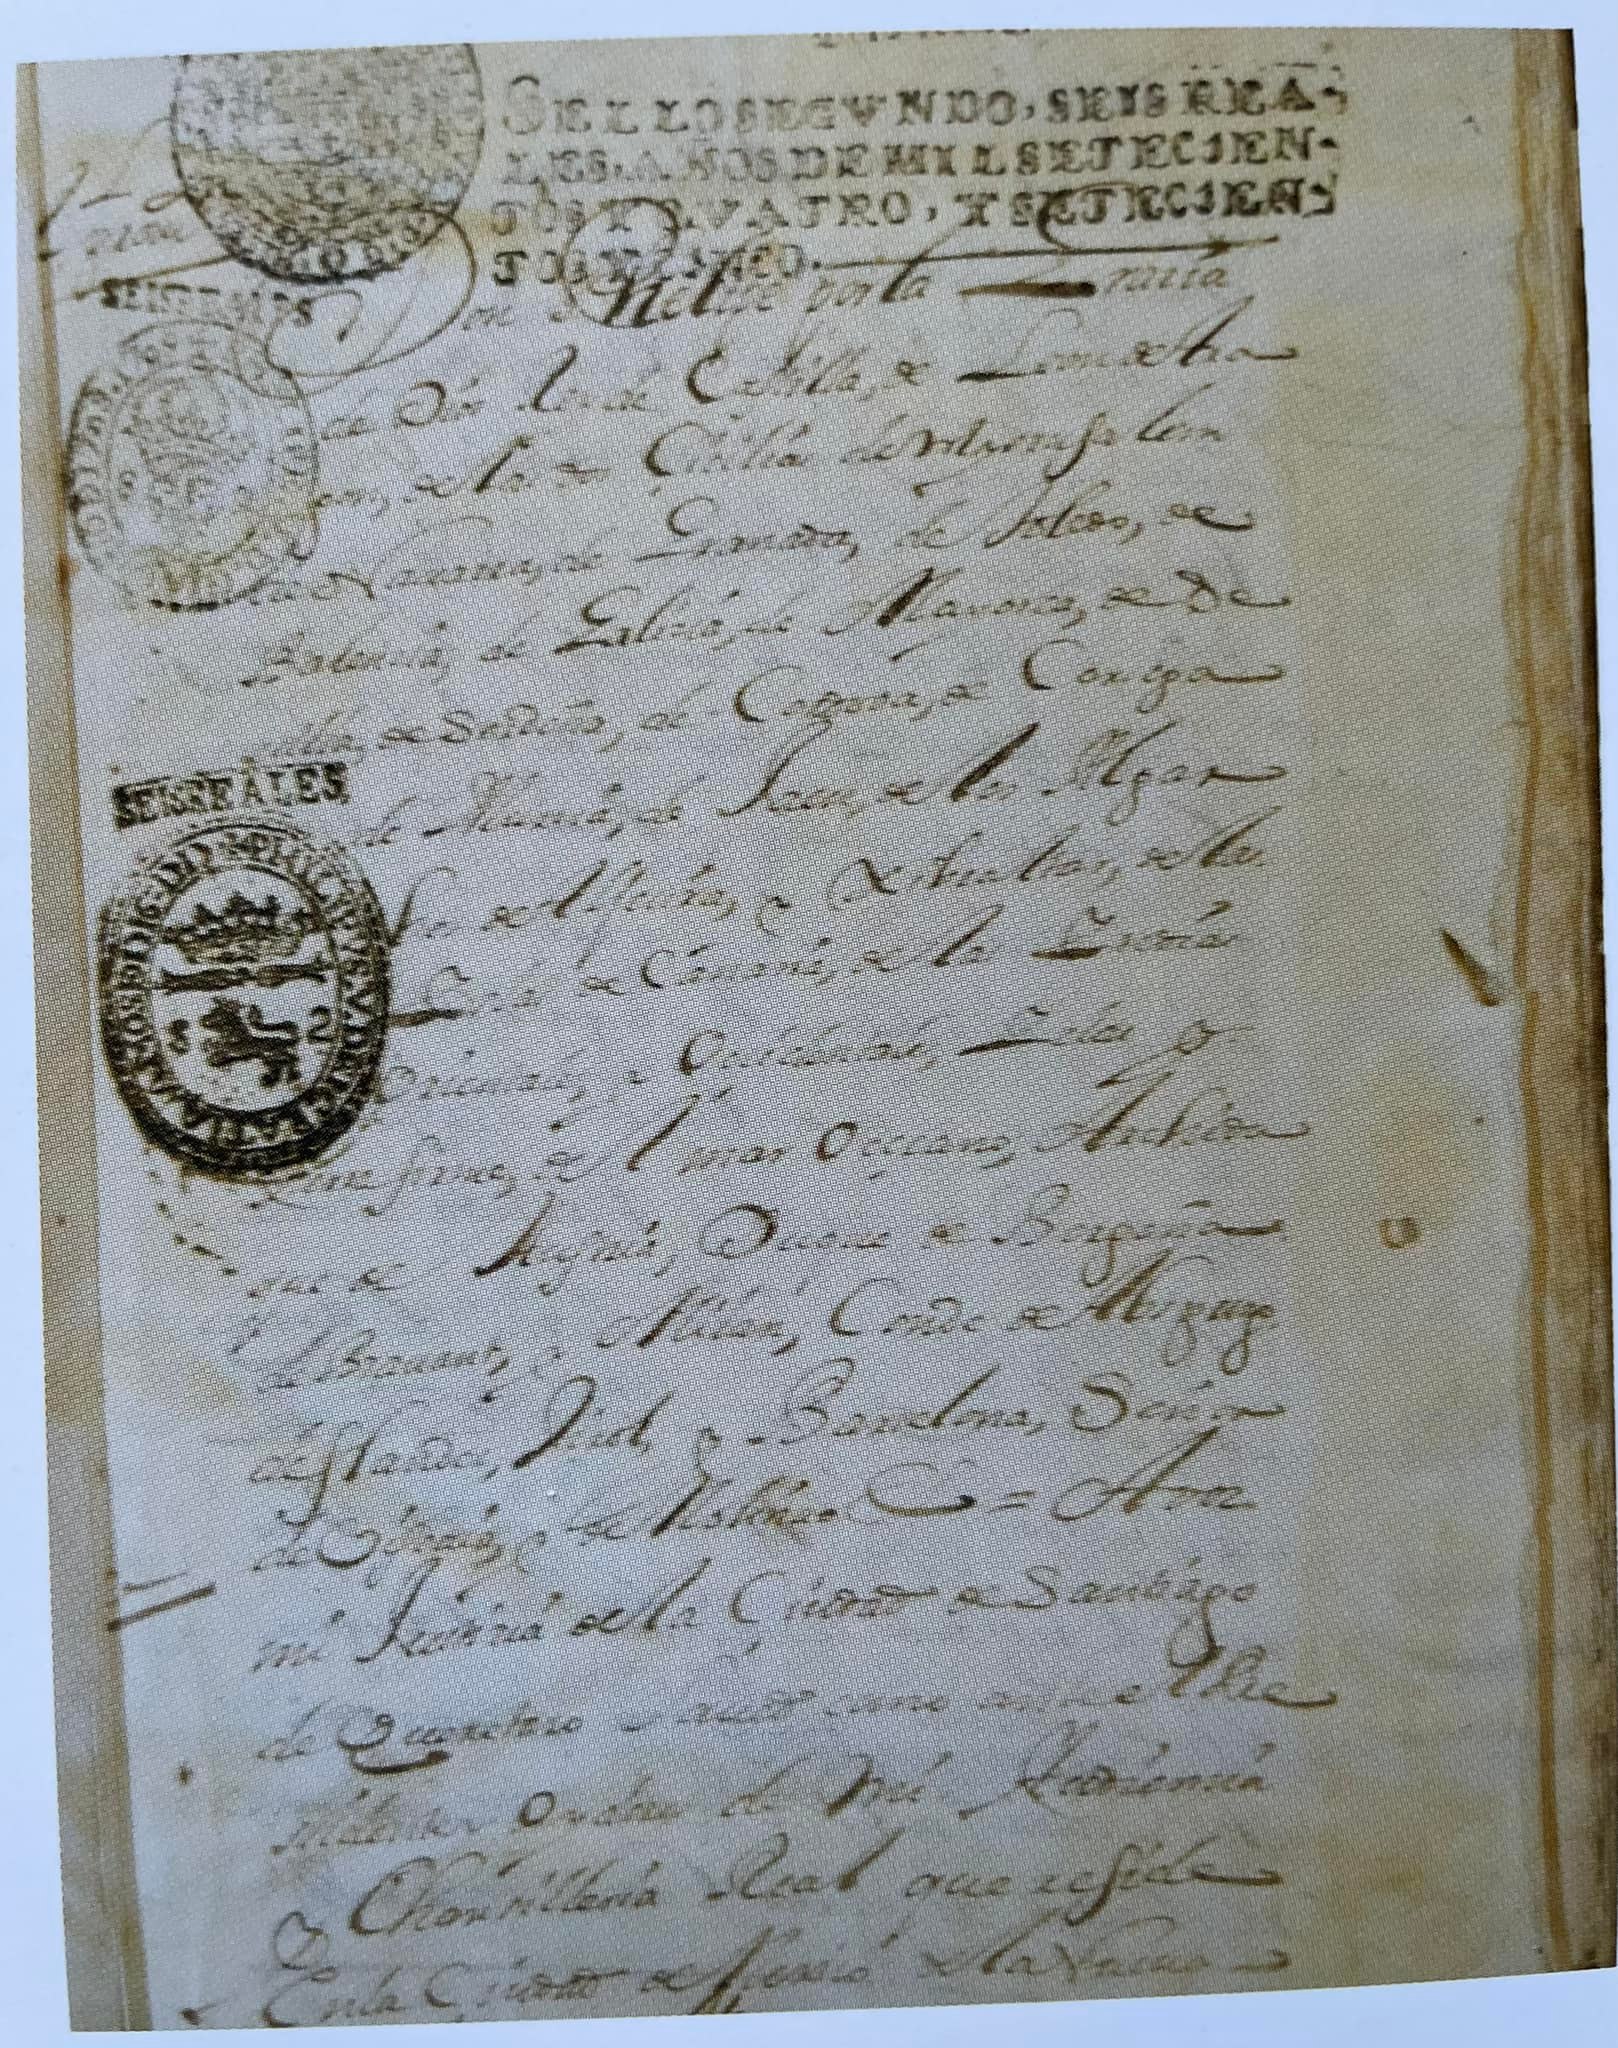 SELLO SEGVNDO, SEIS REA-
LES, AÑOS DE MIL SETECIEN-
TOS Y QVATRO, Y SETECIEN-
TOS Y CINCO.
SEIS REALES
Don Phelipe por la Gracia
de Dios Rey de Castilla, de Leon de Ara
gon, de las dos Cicilias de Hierusalem
de Navarra, de Granada, de Toledo, de
Balencia, de Galicia, de Mayorca, de Se
villa, de Serdeña, de Cordova, de Corsega
de Murcia, de Jaen, de los Algar
SEIS REALES
ves de Algecira, y Gibraltar, de las
Islas de Canaria, de las Indias
Orientales, y Occidentales, Islas y
tierra firme, de el mar Occeano, Archidu
que de Austria, Duque de Borgoña
de Bravante, y Milan, Conde de Abspurg
de Flandes, Tirol, y Barcelona, Señor
de Viscaya, y de Molina = A vos
mi Justicia de la Ciudad de Santiago
de Queretaro
orden de mi Audiencia
y Chansilleria Real que reside
en la Ciudad de Mexico de la Nueva